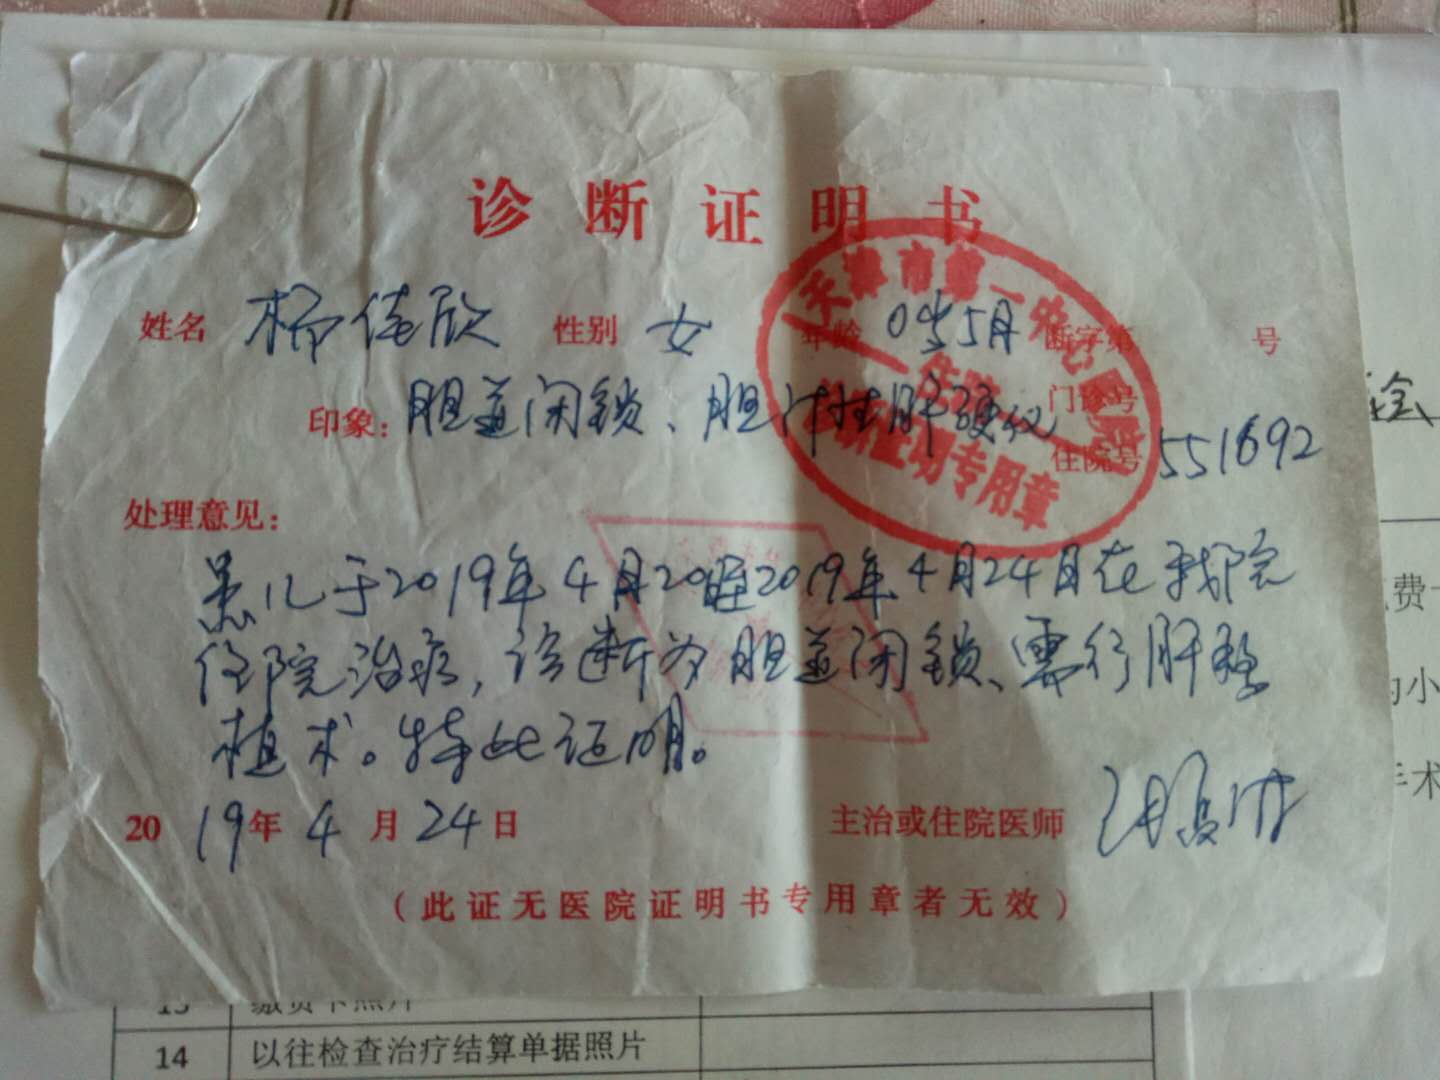 诊断证明书
姓名 杨佳欣 性别 女 年龄 0岁5月 断字第 号
门诊号
印象: 胆道闭锁、胆汁性肝硬化
住院号 551692
天津市第一中心医院
住院
诊断证明专用章
处理意见:
患儿于2019年4月20日至2019年4月24日在我院
住院治疗,诊断为胆道闭锁、需行肝移
植术。特此证明。
2019年4月24日 主治或住院医师
(此证无医院证明书专用章者无效)
13 缴费卡照片
14 以往检查治疗结算单据照片
费
小
手术